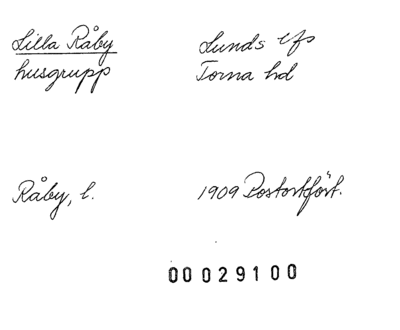 Lilla Råby
husgrupp
Lunds lfs
Torna hd
Råby, l.
1909 Postortfört.
00 0291 00